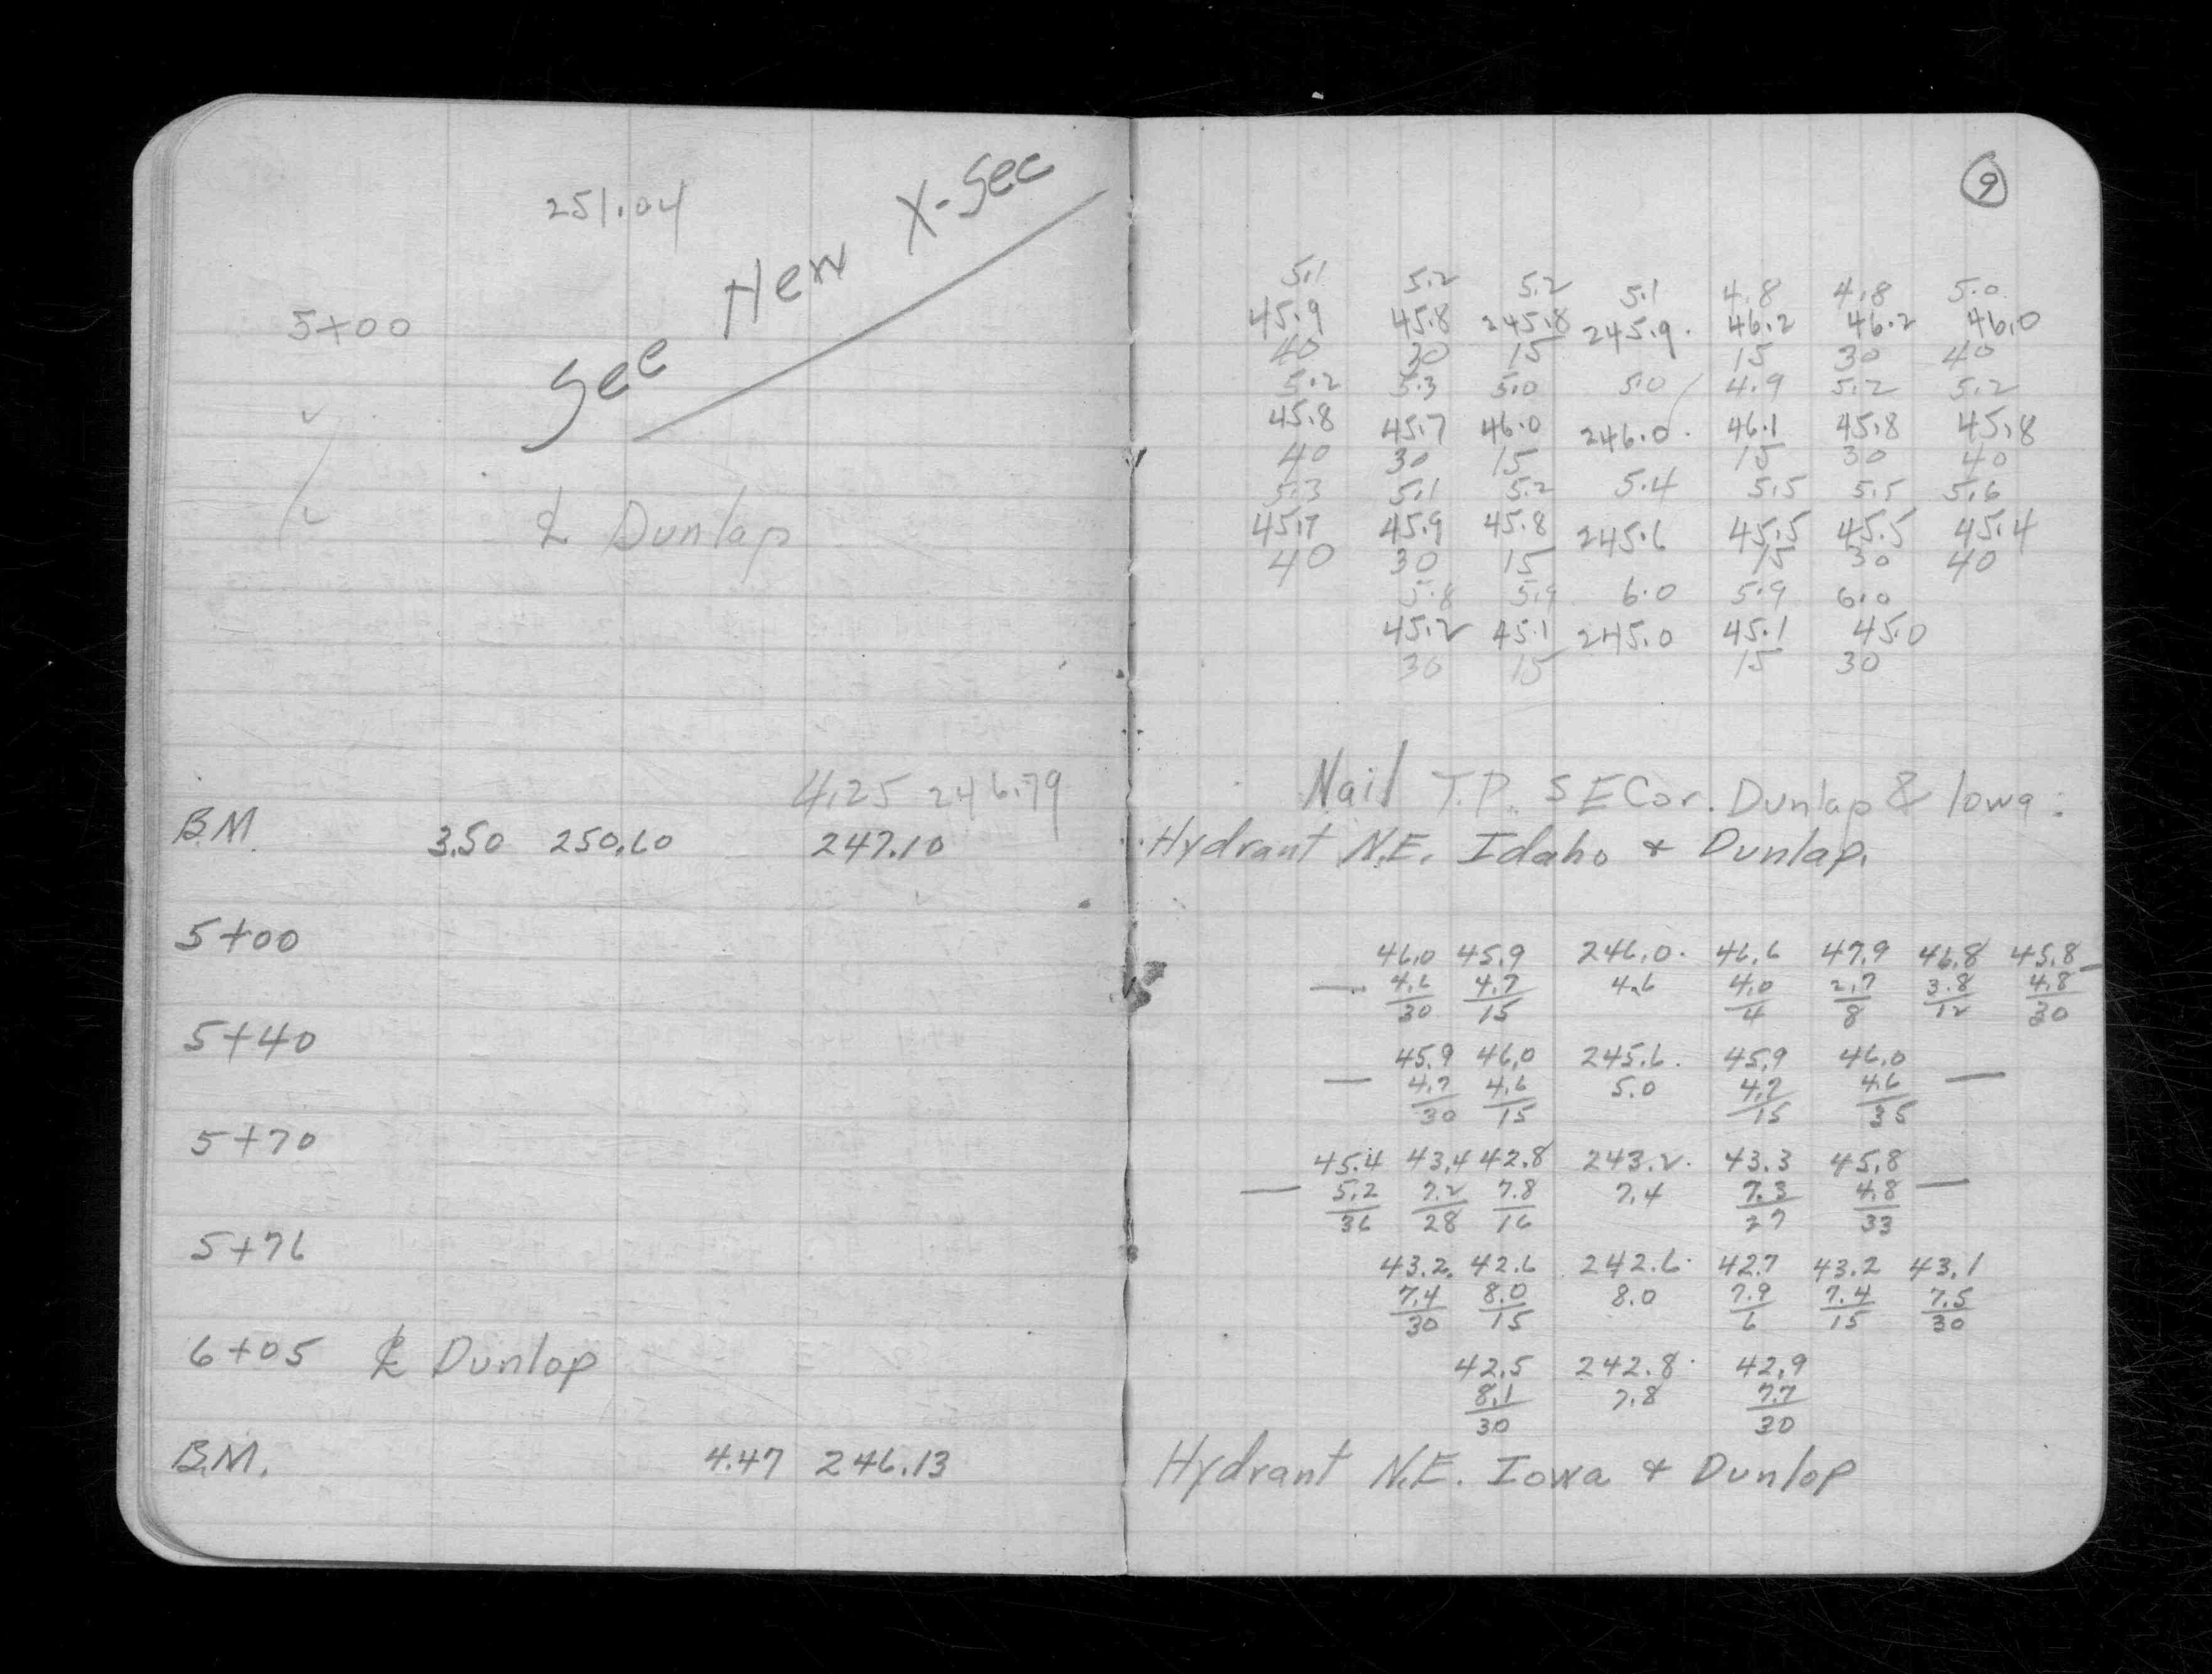 251.04
See New X-Sec
5+00
℄ Dunlap
4.25 246.79
B.M. 3.50 250.60 247.10
5+00
5+40
5+70
5+76
6+05 ℄ Dunlap
B.M. 4.47 246.13
9
5.1 5.2 5.2 5.1 4.8 4.8 5.0
45.9 45.8 245.8 245.9. 46.2 46.2 46.0
40 30 15 15 30 40
5.2 5.3 5.0 5.0 4.9 5.2 5.2
45.8 45.7 46.0 246.0. 46.1 45.8 45.8
40 30 15 15 30 40
5.3 5.1 5.2 5.4 5.5 5.5 5.6
45.7 45.9 45.8 245.6 45.5 45.5 45.4
40 30 15 15 30 40
5.8 5.9 6.0 5.9 6.0
45.2 45.1 245.0 45.1 45.0
30 15 15 30
Nail T.P. S E Cor. Dunlap & Iowa.
Hydrant N.E. Idaho + Dunlap.
46.0 45.9 246.0. 46.6 47.9 46.8 45.8
— 4.6 4.7 4.6 4.0 2.7 3.8 4.8 —
30 15 4 8 12 30
45.9 46.0 245.6. 45.9 46.0
— 4.7 4.6 5.0 4.7 4.6 —
30 15 15 35
45.4 43.4 42.8 243.2. 43.3 45.8
— 5.2 7.2 7.8 7.4 7.3 4.8 —
36 28 16 27 33
43.2 42.6 242.6. 42.7 43.2 43.1
7.4 8.0 8.0 7.9 7.4 7.5
30 15 6 15 30
42.5 242.8. 42.9
8.1 7.8 7.7
30 30
Hydrant N.E. Iowa + Dunlop